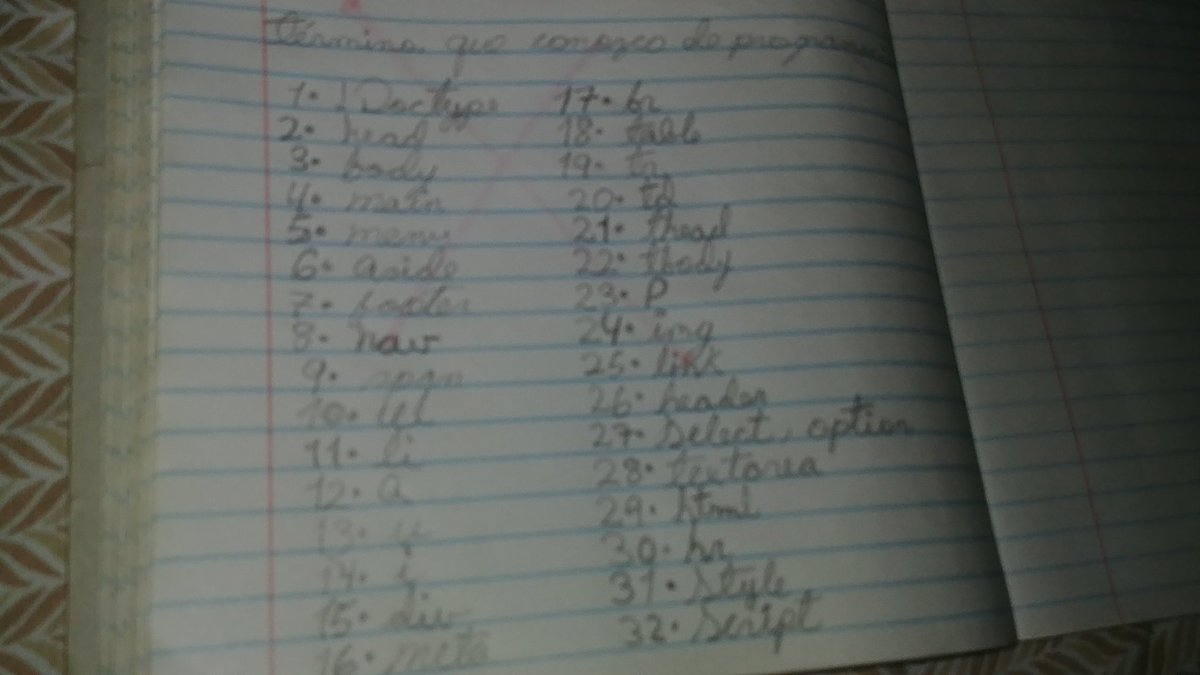 término que conozco de program
1. !Doctype
2. head
3. body
4. main
5. menu
6. aside
7. footer
8. nav
9. span
10. lel
11. li
12. a
13.
14.
15. div
16. meta
17. br
18. table
19. tr
20. td
21. thead
22. tbody
23. P
24. img
25. link
26. header
27. select, option
28. textarea
29. html
30. hr
31. Style
32. Script